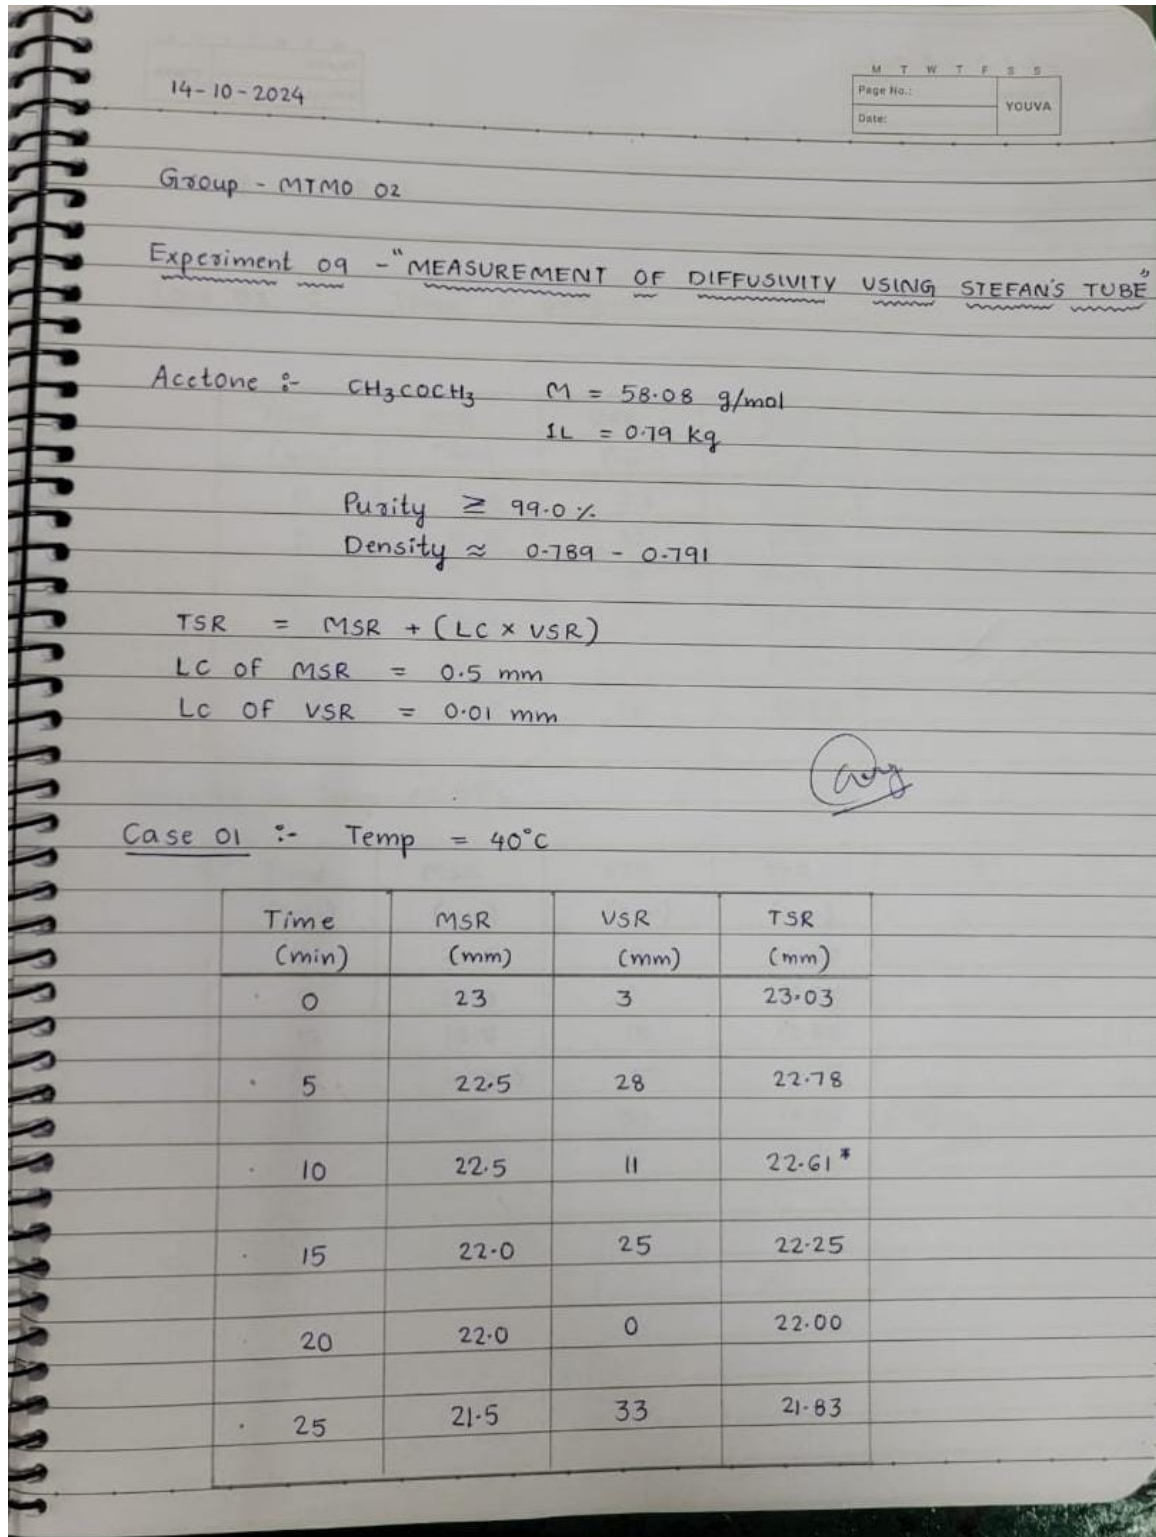 M T W T F S S
Page No.:
YOUVA
Date:
14-10-2024
Group - MTMO 02
Experiment 09 - "MEASUREMENT OF DIFFUSIVITY USING STEFAN'S TUBE"
Acetone :- CH₃COCH₃ M = 58.08 g/mol
1L = 0.79 kg
Purity ≥ 99.0 %
Density ≈ 0.789 - 0.791
TSR = MSR + (LC × VSR)
LC OF MSR = 0.5 mm
LC OF VSR = 0.01 mm
Case 01 :- Temp = 40°C
Time (min) MSR (mm) VSR (mm) TSR (mm)
0 23 3 23.03
5 22.5 28 22.78
10 22.5 11 22.61*
15 22.0 25 22.25
20 22.0 0 22.00
25 21.5 33 21.83